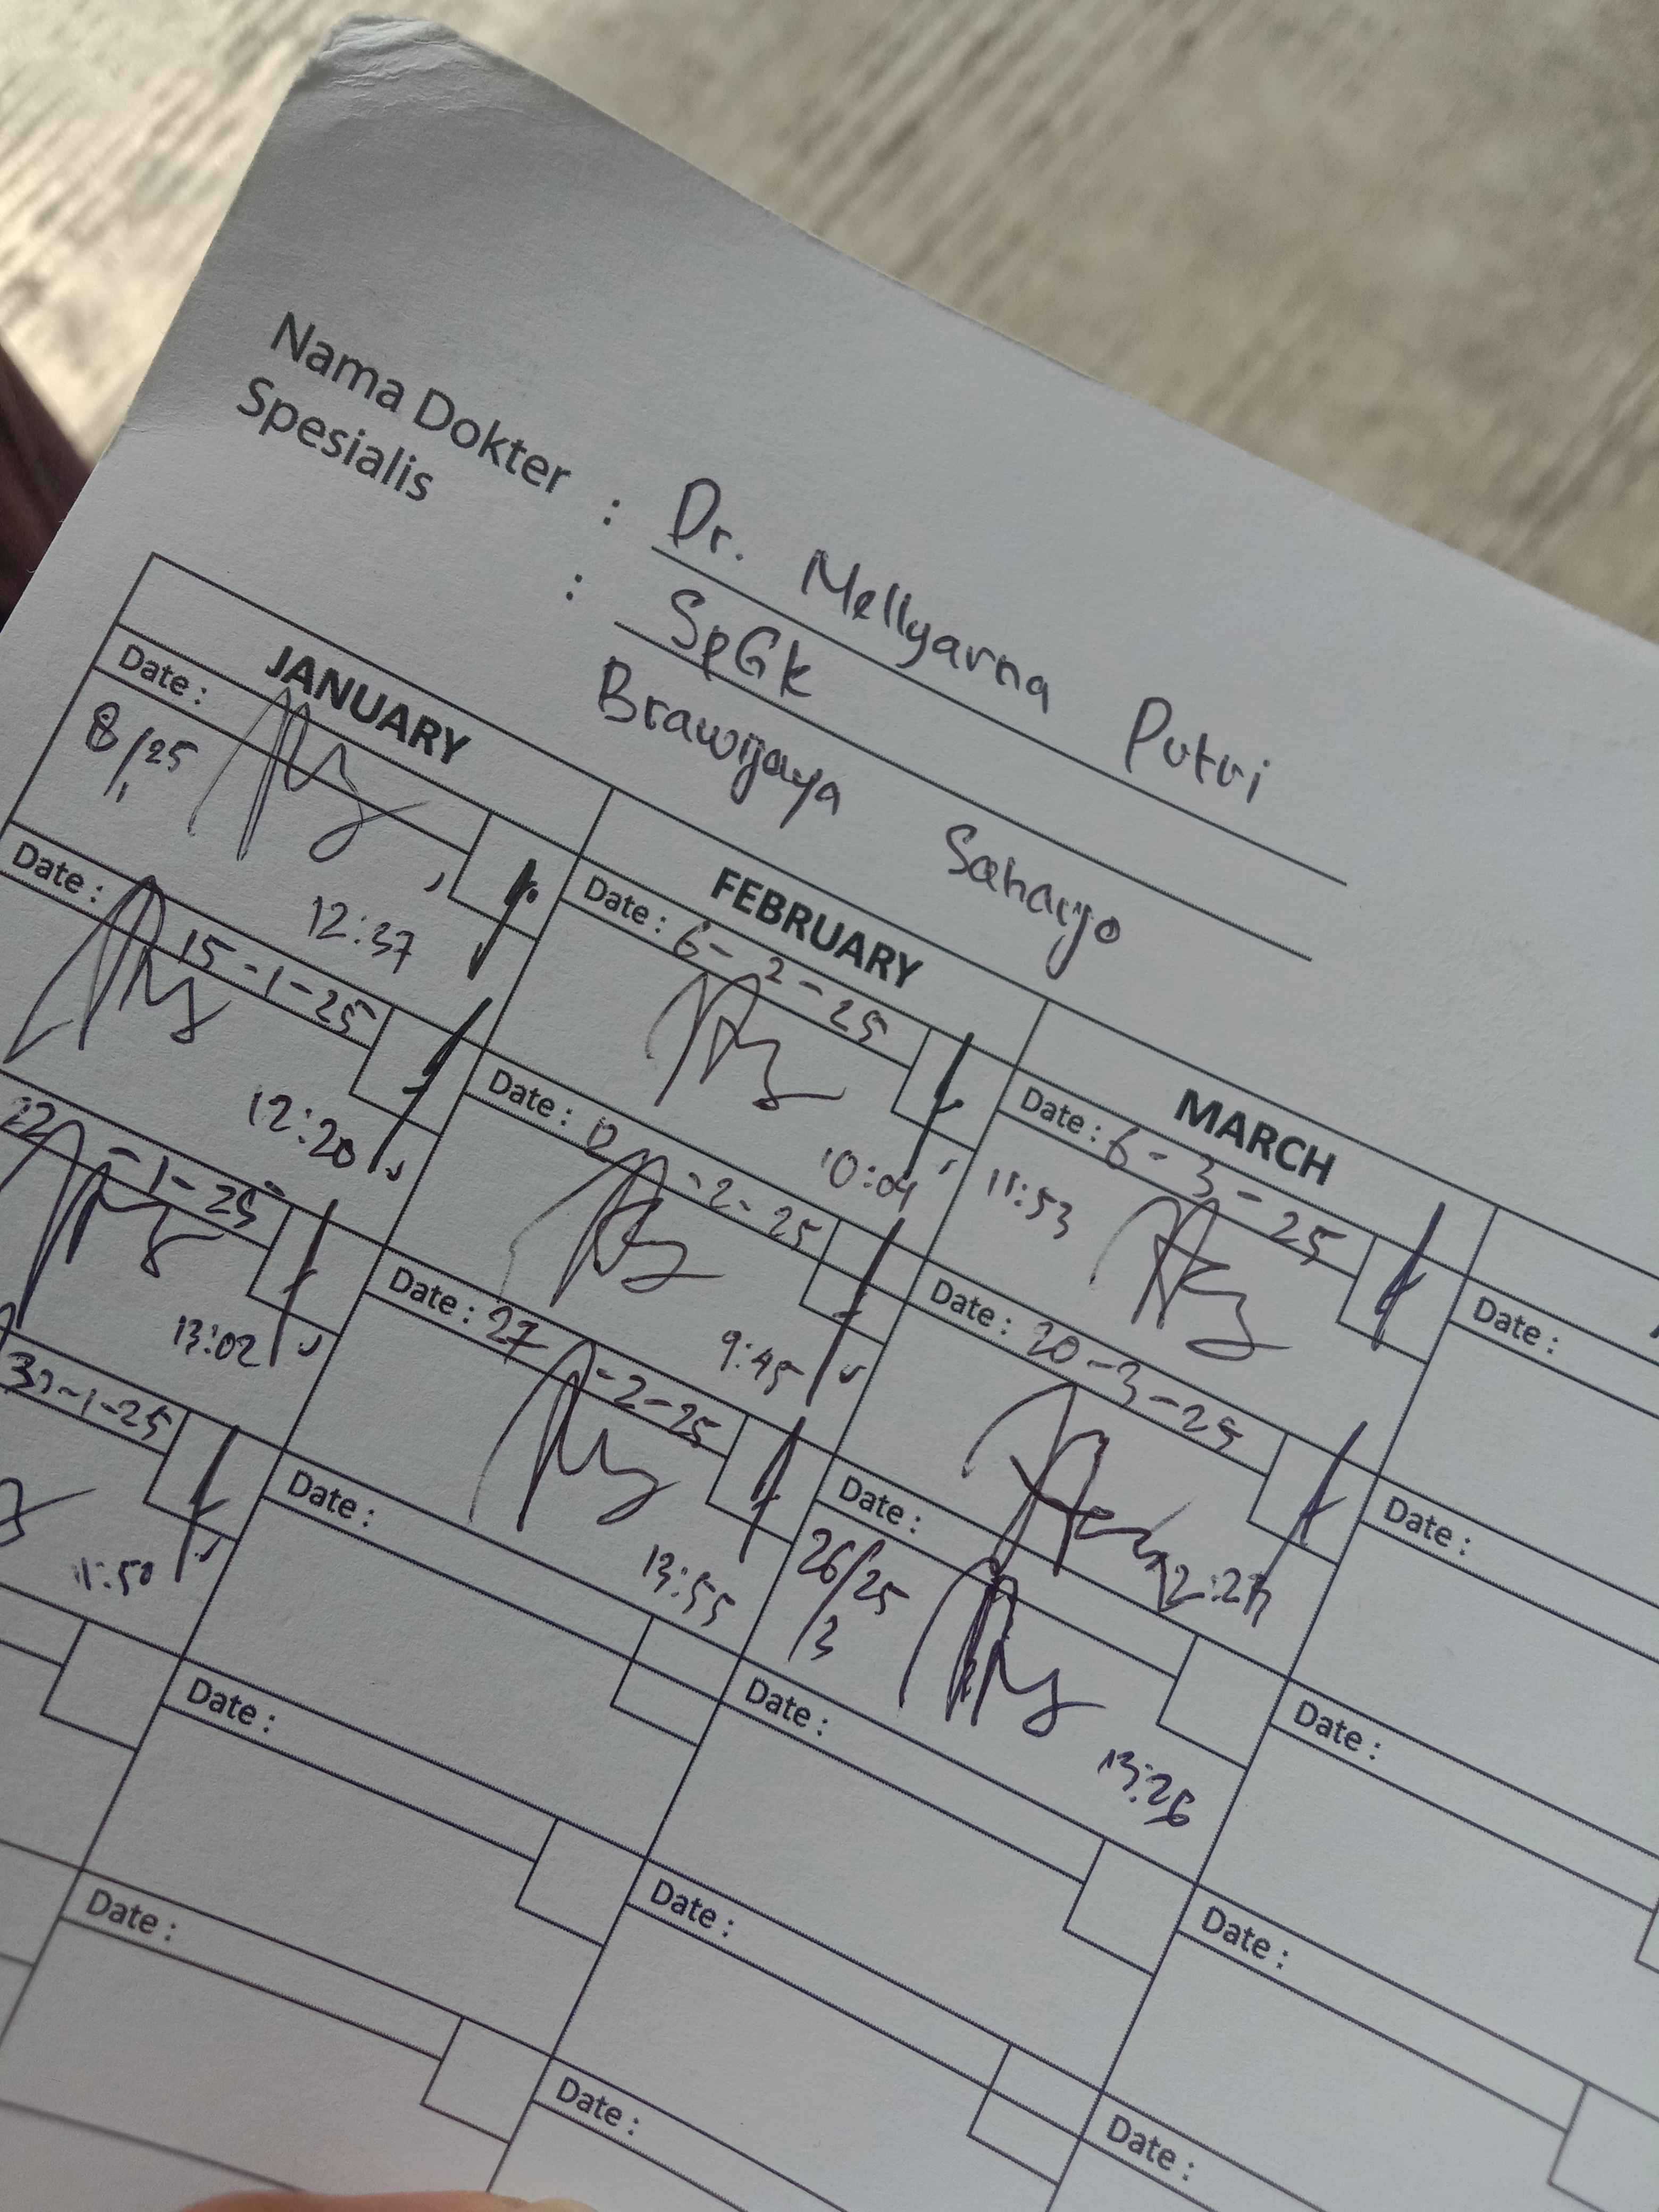 Nama Dokter : Dr. Mellyarna Putri
Spesialis : SpGK
Brawijaya Saharjo
JANUARY FEBRUARY MARCH
Date :
8/25
12:37
Date : 15-1-25
12:20
22-1-25
13:02
30-1-25
11:50
Date : 6-2-25
10:04
Date : 12-2-25
9:45
Date : 27-2-25
13:55
Date :
Date :
Date :
Date : 6-3-25
11:53
Date : 20-3-25
Date :
26/25
3
13:26
Date :
Date :
Date :
Date :
Date :
Date :
Date :
Date :